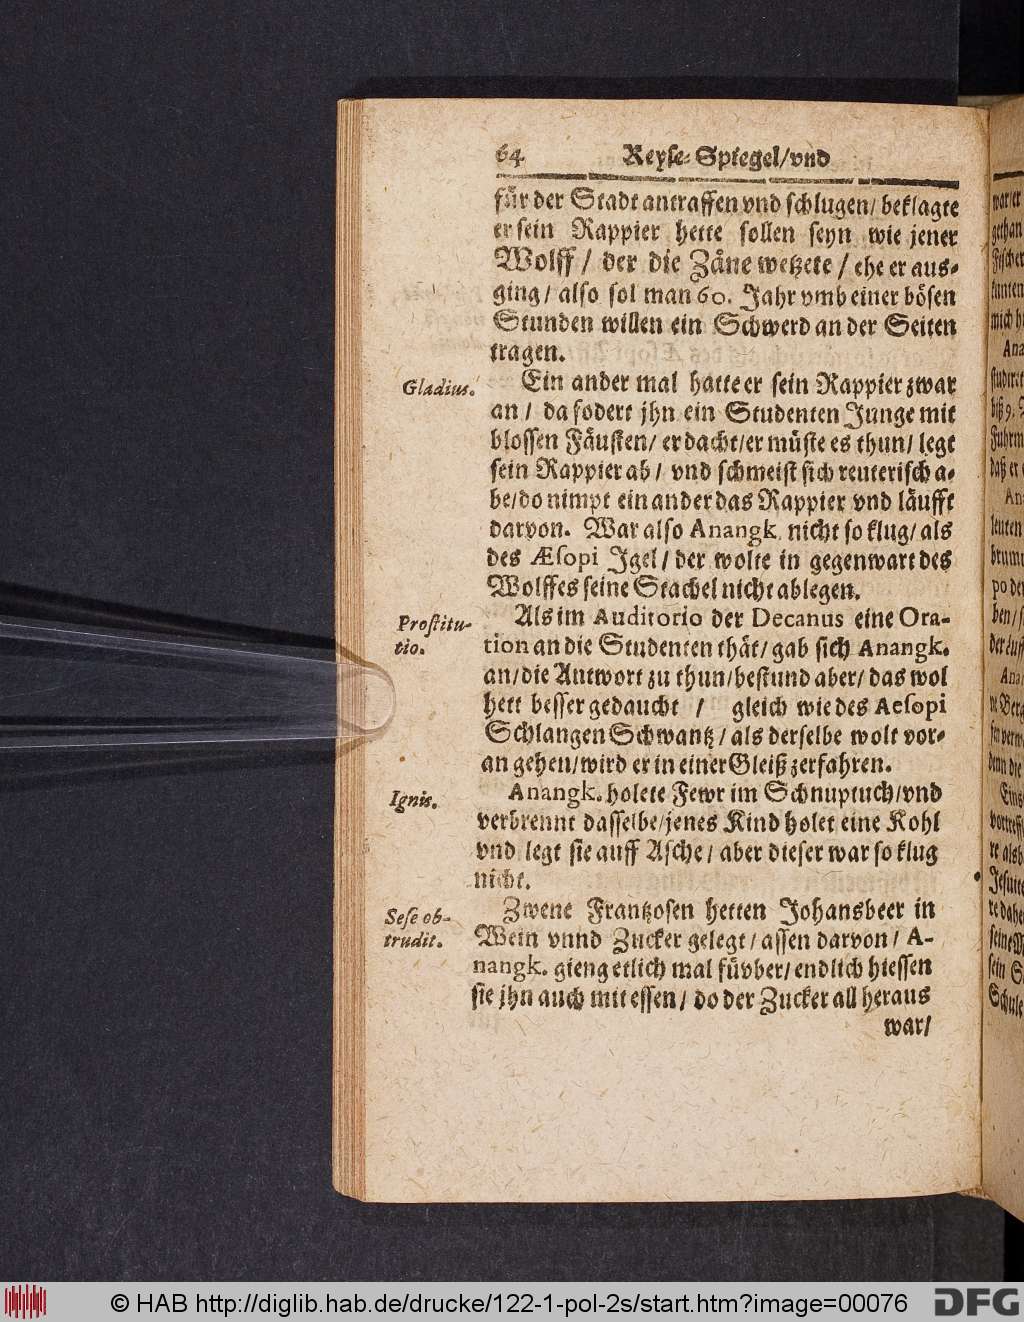 64 Reyse-Spiegel/vnd
für der Stadt antraffen vnd schlugen/ beklagte
er sein Rappier hette sollen seyn wie jener
Wolff/ der die Zåne wetzete/ ehe er aus-
ging/ also sol man 60. Jahr vmb einer bösen
Stunden willen ein Schwerd an der Seiten
tragen.
Gladius. Ein ander mal hatte er sein Rappier zwar
an/ da fodert jhn ein Studenten Junge mit
blossen Fäusten/ er dacht/er müste es thun/ legt
sein Rappier ab/ vnd schmeist sich reuterisch a-
be/do nimpt ein ander das Rappier vnd läufft
darvon. War also Anangk. nicht so klug/ als
des Æsopi Jgel/ der wolte in gegenwart des
Wolffes seine Stachel nicht ablegen.
Prostitu- Als im Auditorio der Decanus eine Ora-
tio. tion an die Studenten thät/ gab sich Anangk.
an/die Antwort zu thun/bestund aber/ das wol
hett besser gedaucht / gleich wie des Aesopi
Schlangen Schwantz/ als derselbe wolt vor-
an gehen/wird er in einer Gleiß zerfahren.
Ignis. Anangk. holete Fewr im Schnuptuch/vnd
verbrennt dasselbe/jenes Kind holet eine Kohl
vnd legt sie auff Asche/ aber dieser war so klug
nicht.
Sese ob- Zwene Frantzosen hetten Johansbeer in
trudit. Wein vnnd Zucker gelegt/ assen darvon/ A-
nangk. gieng etlich mal füvber/ endlich hiessen
sie jhn auch mit essen/ do der Zucker all heraus
war/
© HAB http://diglib.hab.de/drucke/122-1-pol-2s/start.htm?image=00076 DFG